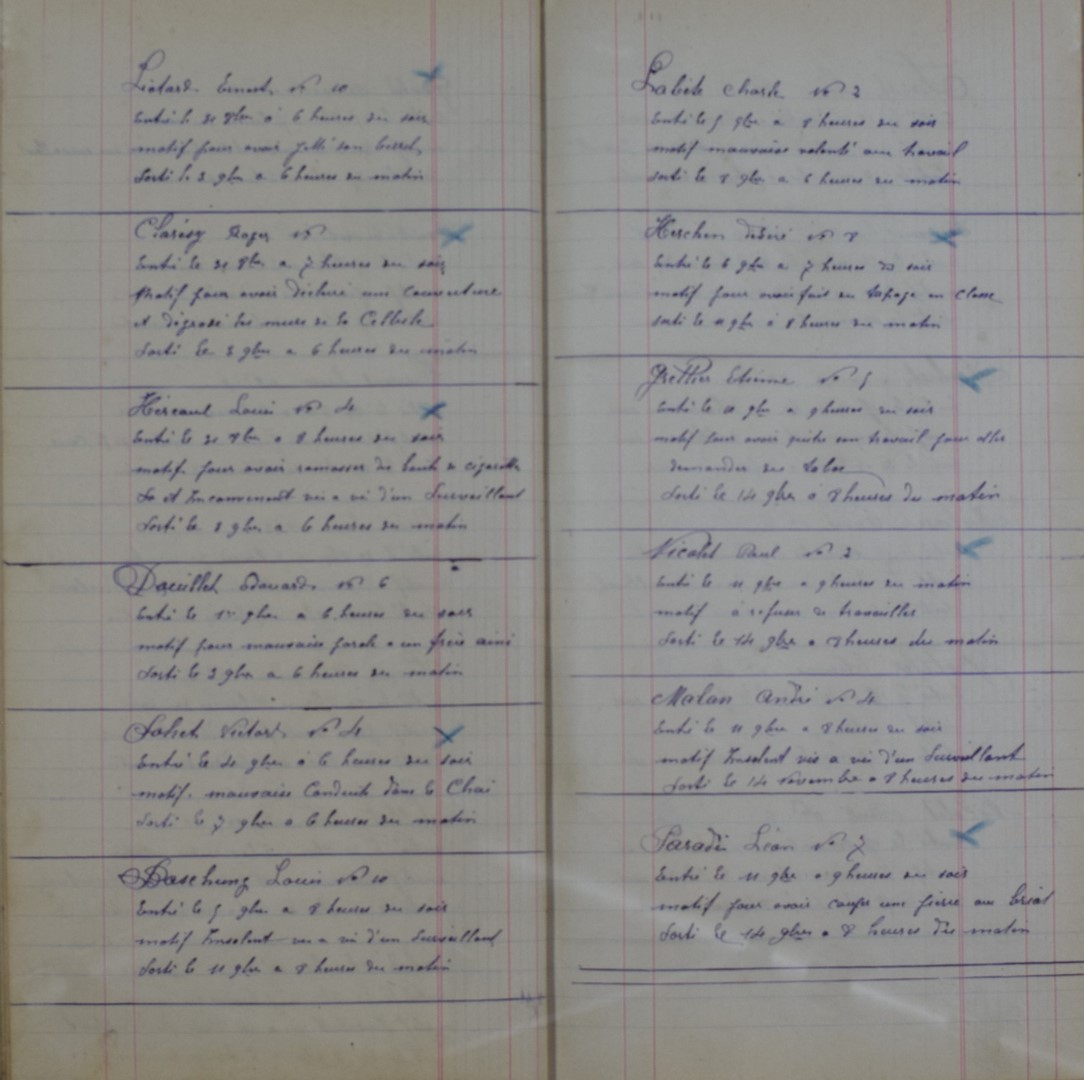 Liotard Ernest No 10
Entré le 31 8bre à 6 heures du soir
motif pour avoir jetté son béret
Sorti le 3 9bre a 6 heures du matin
Clarisy Roger No
Entré le 31 8bre a 7 heures du soir
Motif pour avoir déchiré une couverture
et dégradé les murs de la Cellule
Sorti le 3 9bre a 6 heures du matin
Louis No 4
Entré le 31 8bre a 8 heures du soir
motif pour avoir ramasser de bouts de cigarette
et Inconvenant vis a vi d'un Surveillant
Sorti le 3 9bre a 6 heures du matin
Douillet Edouard No 6
Entré le 1er 9bre à 6 heures du soir
motif pour mauvaise parole a un frère ainé
Sorti le 3 9bre a 6 heures du matin
Victor No 4
Entré le 4 9bre à 6 heures du soir
motif mauvaise Conduite dans le Chai
Sorti le 7 9bre a 6 heures du matin
Baschung Louis No 10
Entré le 5 9bre a 8 heures du soir
motif Insolent vis a vi d'un Surveillant
Sorti le 11 9bre a 8 heures du matin
Labite Charle No 2
Entré le 5 9bre a 8 heures du soir
motif mauvaise volonté au travail
Sorti le 8 9bre a 6 heures du matin
Herchin Désiré No 8
Entré le 6 9bre a 7 heures du soir
motif pour avoir fait du tapage en classe
sorti le 11 9bre à 8 heures du matin
Grettier Etienne No 5
Entré le 10 9bre a 9 heures du soir
motif pour avoir quitté son travail pour aller
demander du tabac
Sorti le 14 9bre à 8 heures du matin
Nicolet Paul No 3
Entré le 11 9bre a 9 heures du matin
motif à refuser de travailler
Sorti le 14 9bre a 8 heures du matin
Malan André No 4
Entré le 11 9bre a 8 heures du soir
motif Insolent vis a vis d'un Surveillant
Sorti le 14 Novembre a 8 heures du matin
Paradis Léon No 7
Entré le 11 9bre a 9 heures du soir
motif pour avoir une pierre au
Sorti le 14 9bre a 8 heures du matin